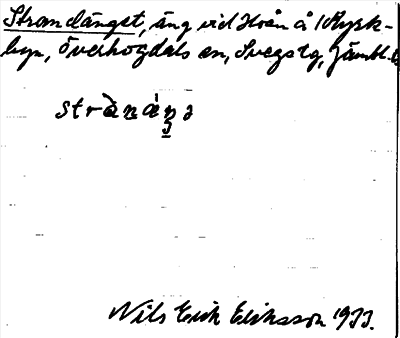 Strandängst, äng vid Hoån å Kyrk-
byn, Överhogdals sn, Svegs tg, Jämtl. l.
strànáŋə
Nils Erik Eriksson 1933.